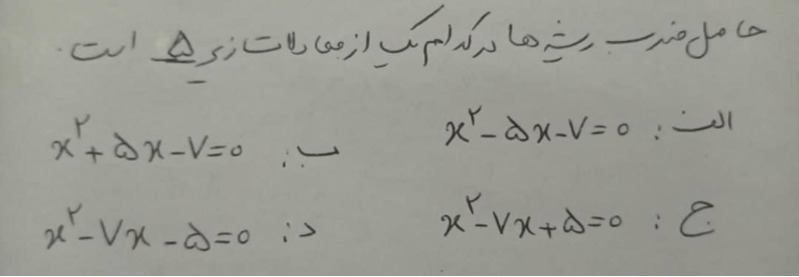 حاصل ضرب ریشه ها در کدام یک از معادلات زیر ۵ است.
الف: x² - ۵x - ۷ = ۰ ب: x² + ۵x - ۷ = ۰
ج: x² - ۷x + ۵ = ۰ د: x² - ۷x - ۵ = ۰